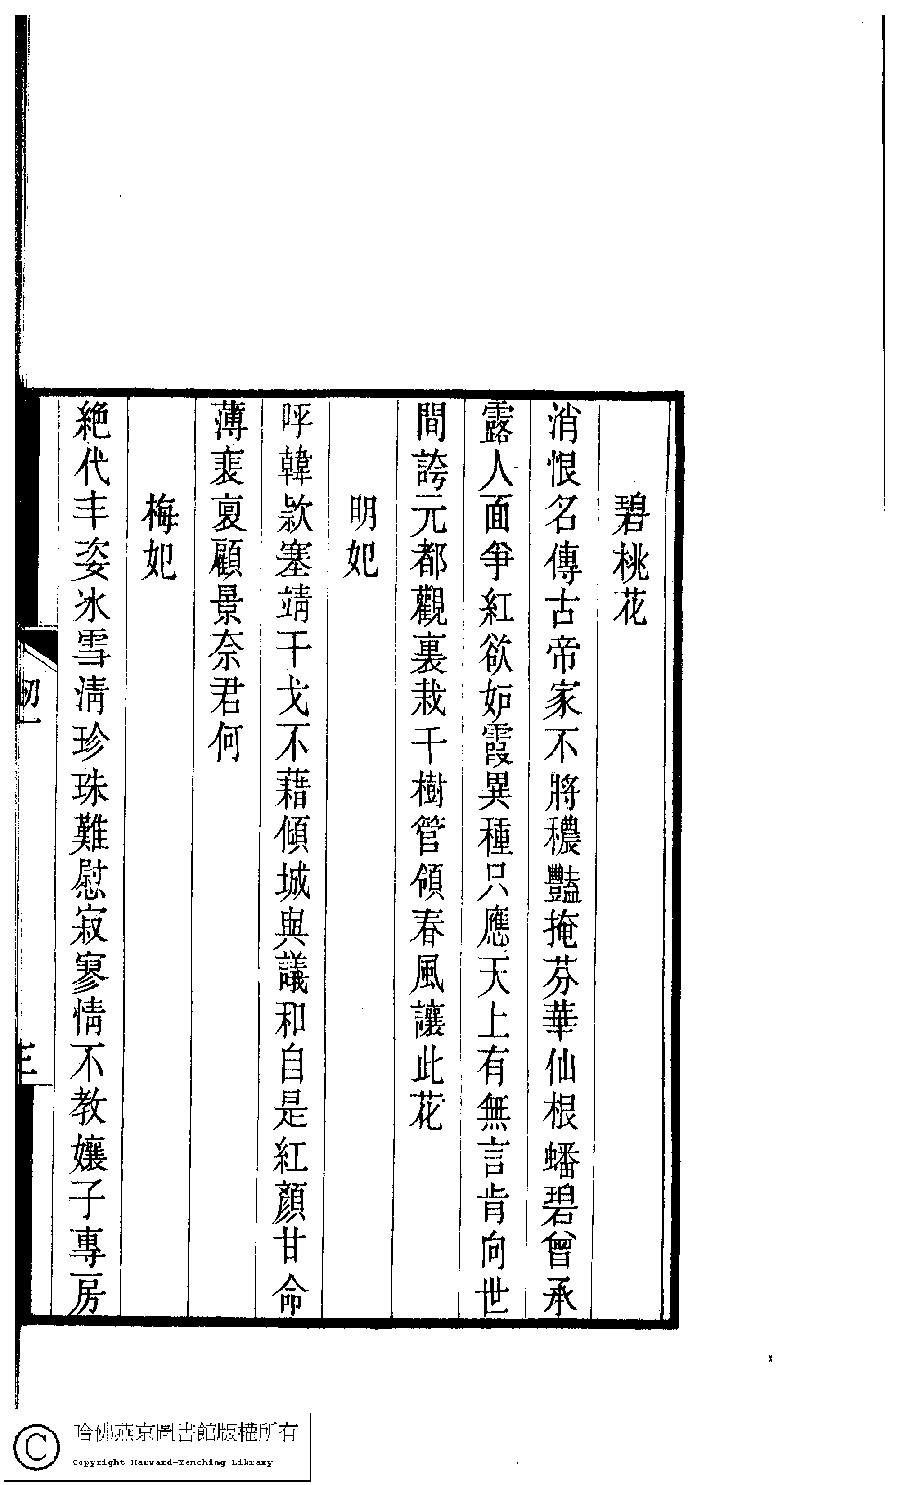 碧桃花
消恨名傳古帝家不將穠豔掩芬華仙根蟠碧曾承
露人面爭紅欲妒霞異種只應天上有無言肯向世
間誇元都觀裏栽千樹管領春風讓此花
明妃
呼韓款塞靖干戈不藉傾城與議和自是紅顏甘命
薄裴裛顧景奈君何
梅妃
絶代丰姿冰雪清珍珠難慰寂寥情不教孃子專房
三
哈佛燕京圖書館版權所有
Copyright Harvard-Yenching Library